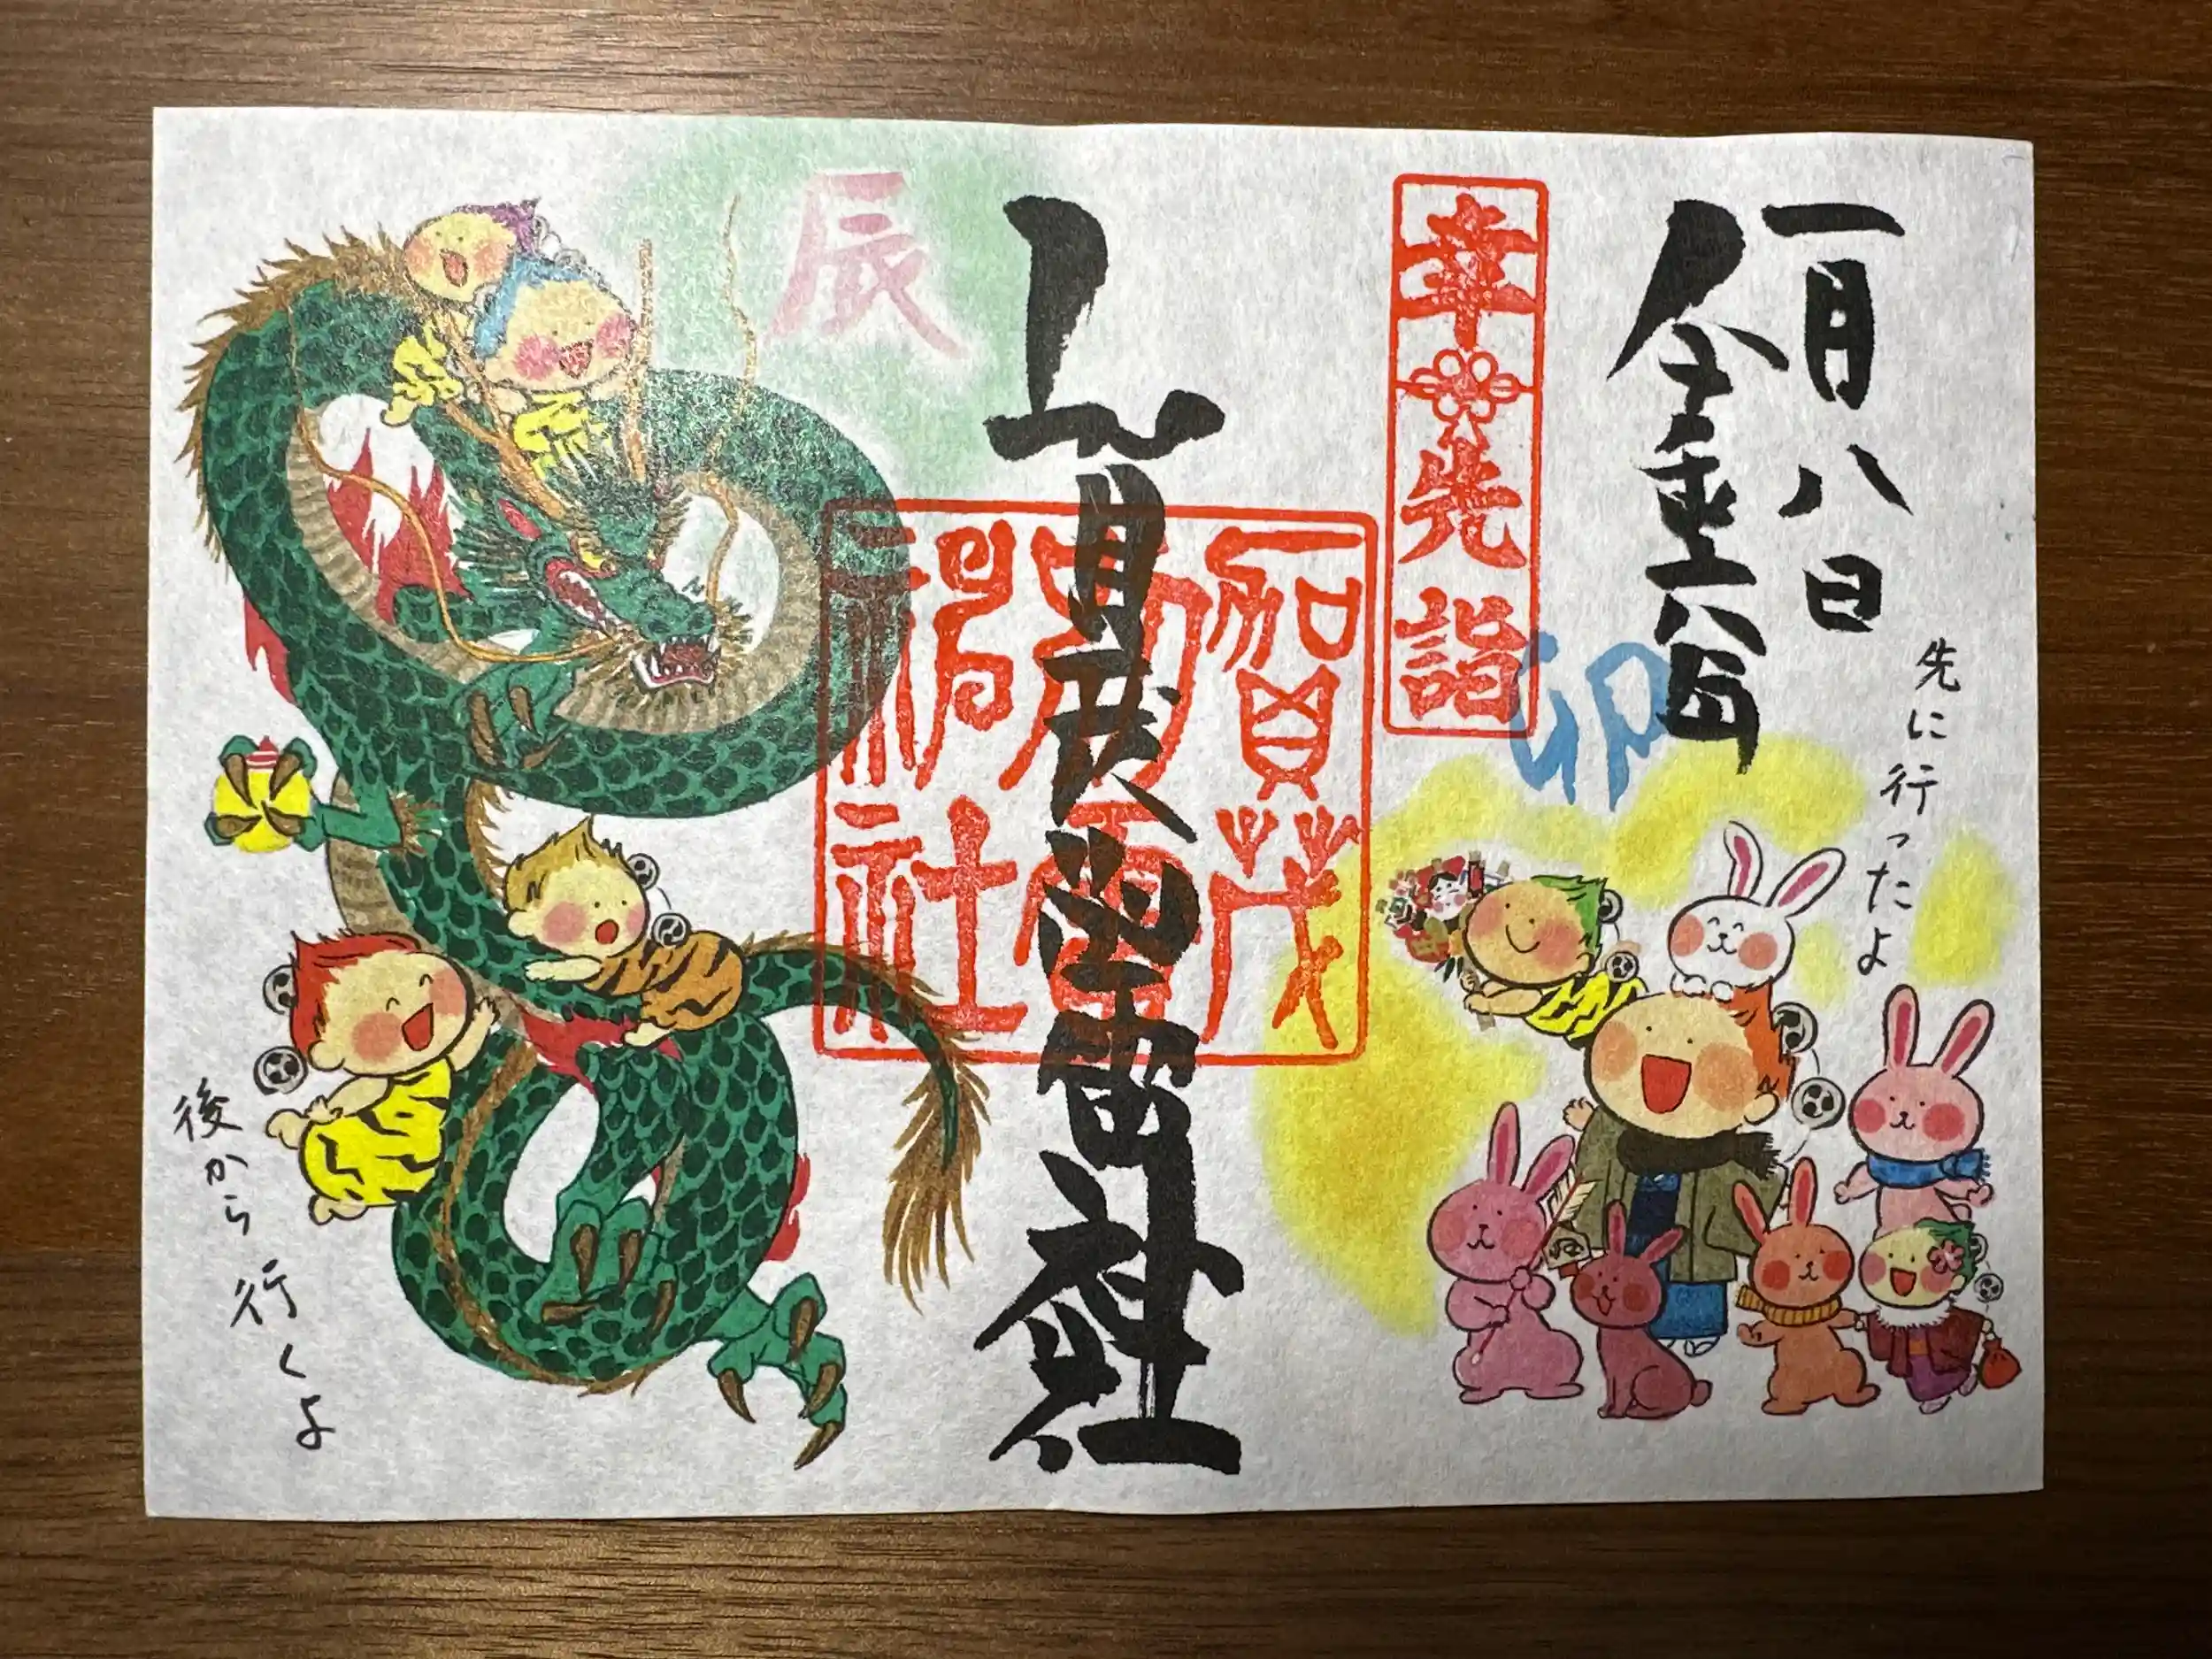 一月八日
先に行ったよ
卯
幸先詣
賀茂別雷神社
賀茂
別雷
神社
辰
後から行くよ